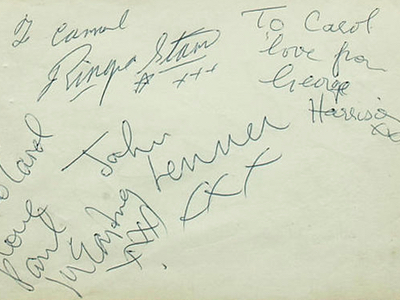 To Carrol
Ringo Starr
xxx
To Carol
love from
George
Harrison
xx
John Lennon
xxx
To Carol
love
Paul
McCartney
xxx